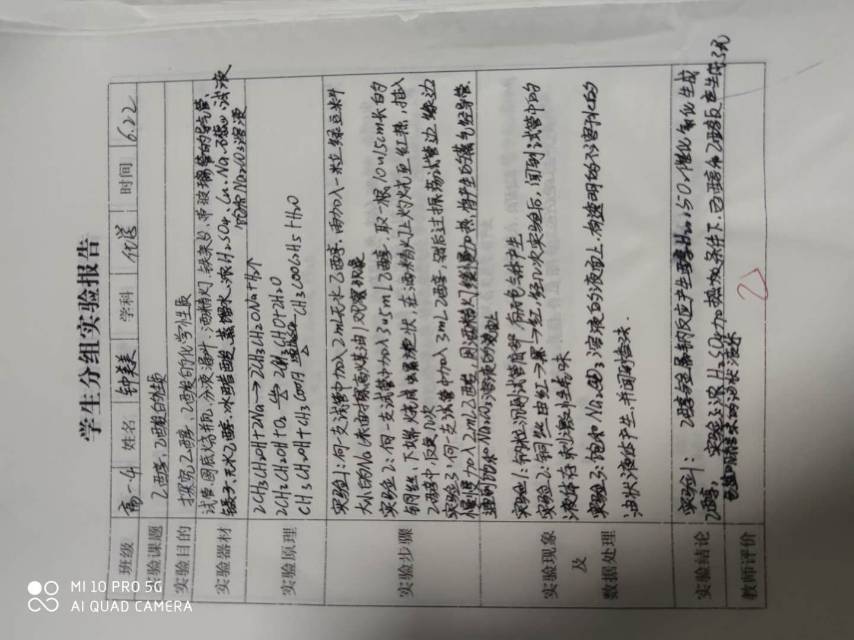 学生分组实验报告
班级 高一.4 姓名 钟美美 学科 化学 时间 6.22
实验课题 乙醇,乙酸的性质
实验目的 探究乙醇、乙酸的化学性质
实验器材 试管.圆底烧瓶.分液漏斗.酒精灯.铁架台.带玻璃管的导气管.
镊子.无水乙醇.冰醋酸.蒸馏水.浓H₂SO₄.Cu.Na.石蕊试液
饱和Na₂CO₃溶液
实验原理 2CH₃CH₂OH+2Na→2CH₃CH₂ONa+H₂↑
2CH₃CH₂OH+O₂ →2CH₃CHO+2H₂O
CH₃CH₂OH+CH₃COOH CH₃COOC₂H₅+H₂O
实验步骤 实验1:向一支试管中加入2mL无水乙醇,再加入一粒绿豆粒
大小的Na(表面擦干煤油),观察现象
实验2:向一支试管中加入3~5mL乙醇.取一根10~15cm长的
铜丝,下端绕成螺旋状,在酒精灯上灼烧至红热,插入
乙醇中,反复几次
实验3:向一支试管中加入3mL乙醇,然后边振荡试管边
慢慢加入2mL乙酸,用酒精灯缓慢加热,将产生的蒸气经导管
通到饱和Na₂CO₃溶液的液面上
实验现象及数据处理 实验1:钠粒沉到试管底部,有无色气体产生
实验2:铜丝由红→黑→红,经几次实验后,闻到试管中的
液体有刺激性气味
实验3:饱和Na₂CO₃溶液的液面上,有透明的不溶于水的
油状液体产生,并闻到香味.
实验结论 实验1:乙醇与金属钠反应产生 催化氧化生成
乙醛, 实验3:浓H₂SO₄加热条件下,乙醇和乙酸反产生
的油状液体
教师评价
MI 10 PRO 5G
AI QUAD CAMERA